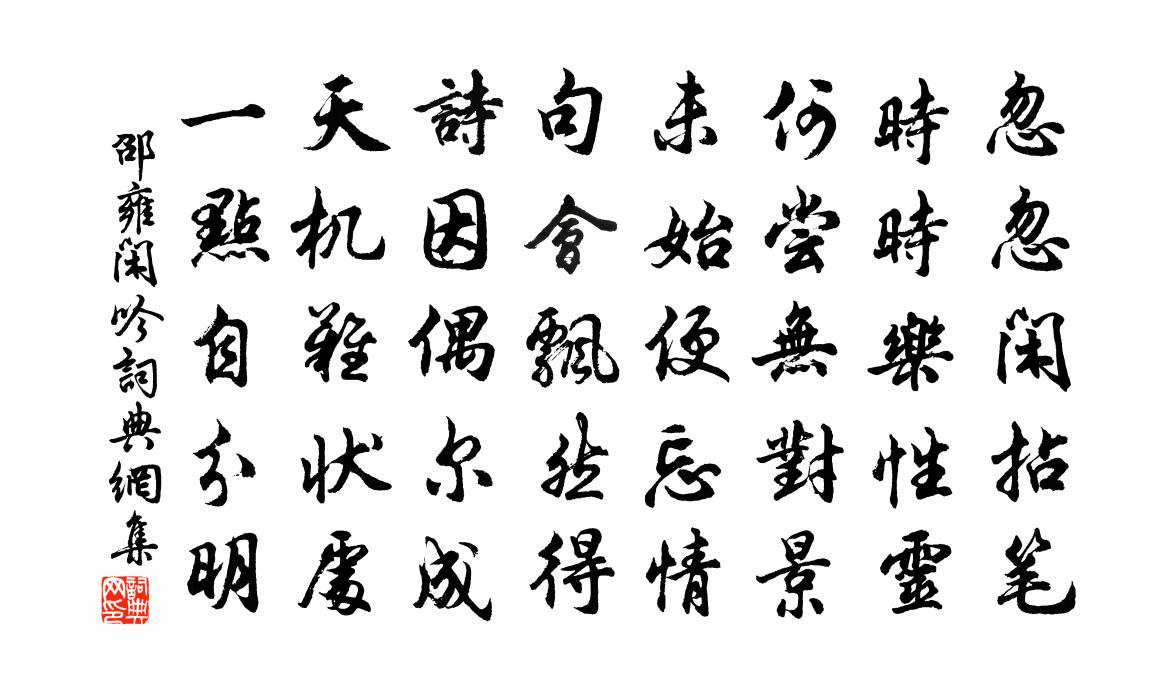 忽忽闲拈笔
時時樂性靈
何嘗無對景
未始便忘情
句會飄然得
詩因偶尔成
天机難状處
一點自分明
邵雍闲吟詞典網集
詞典网印